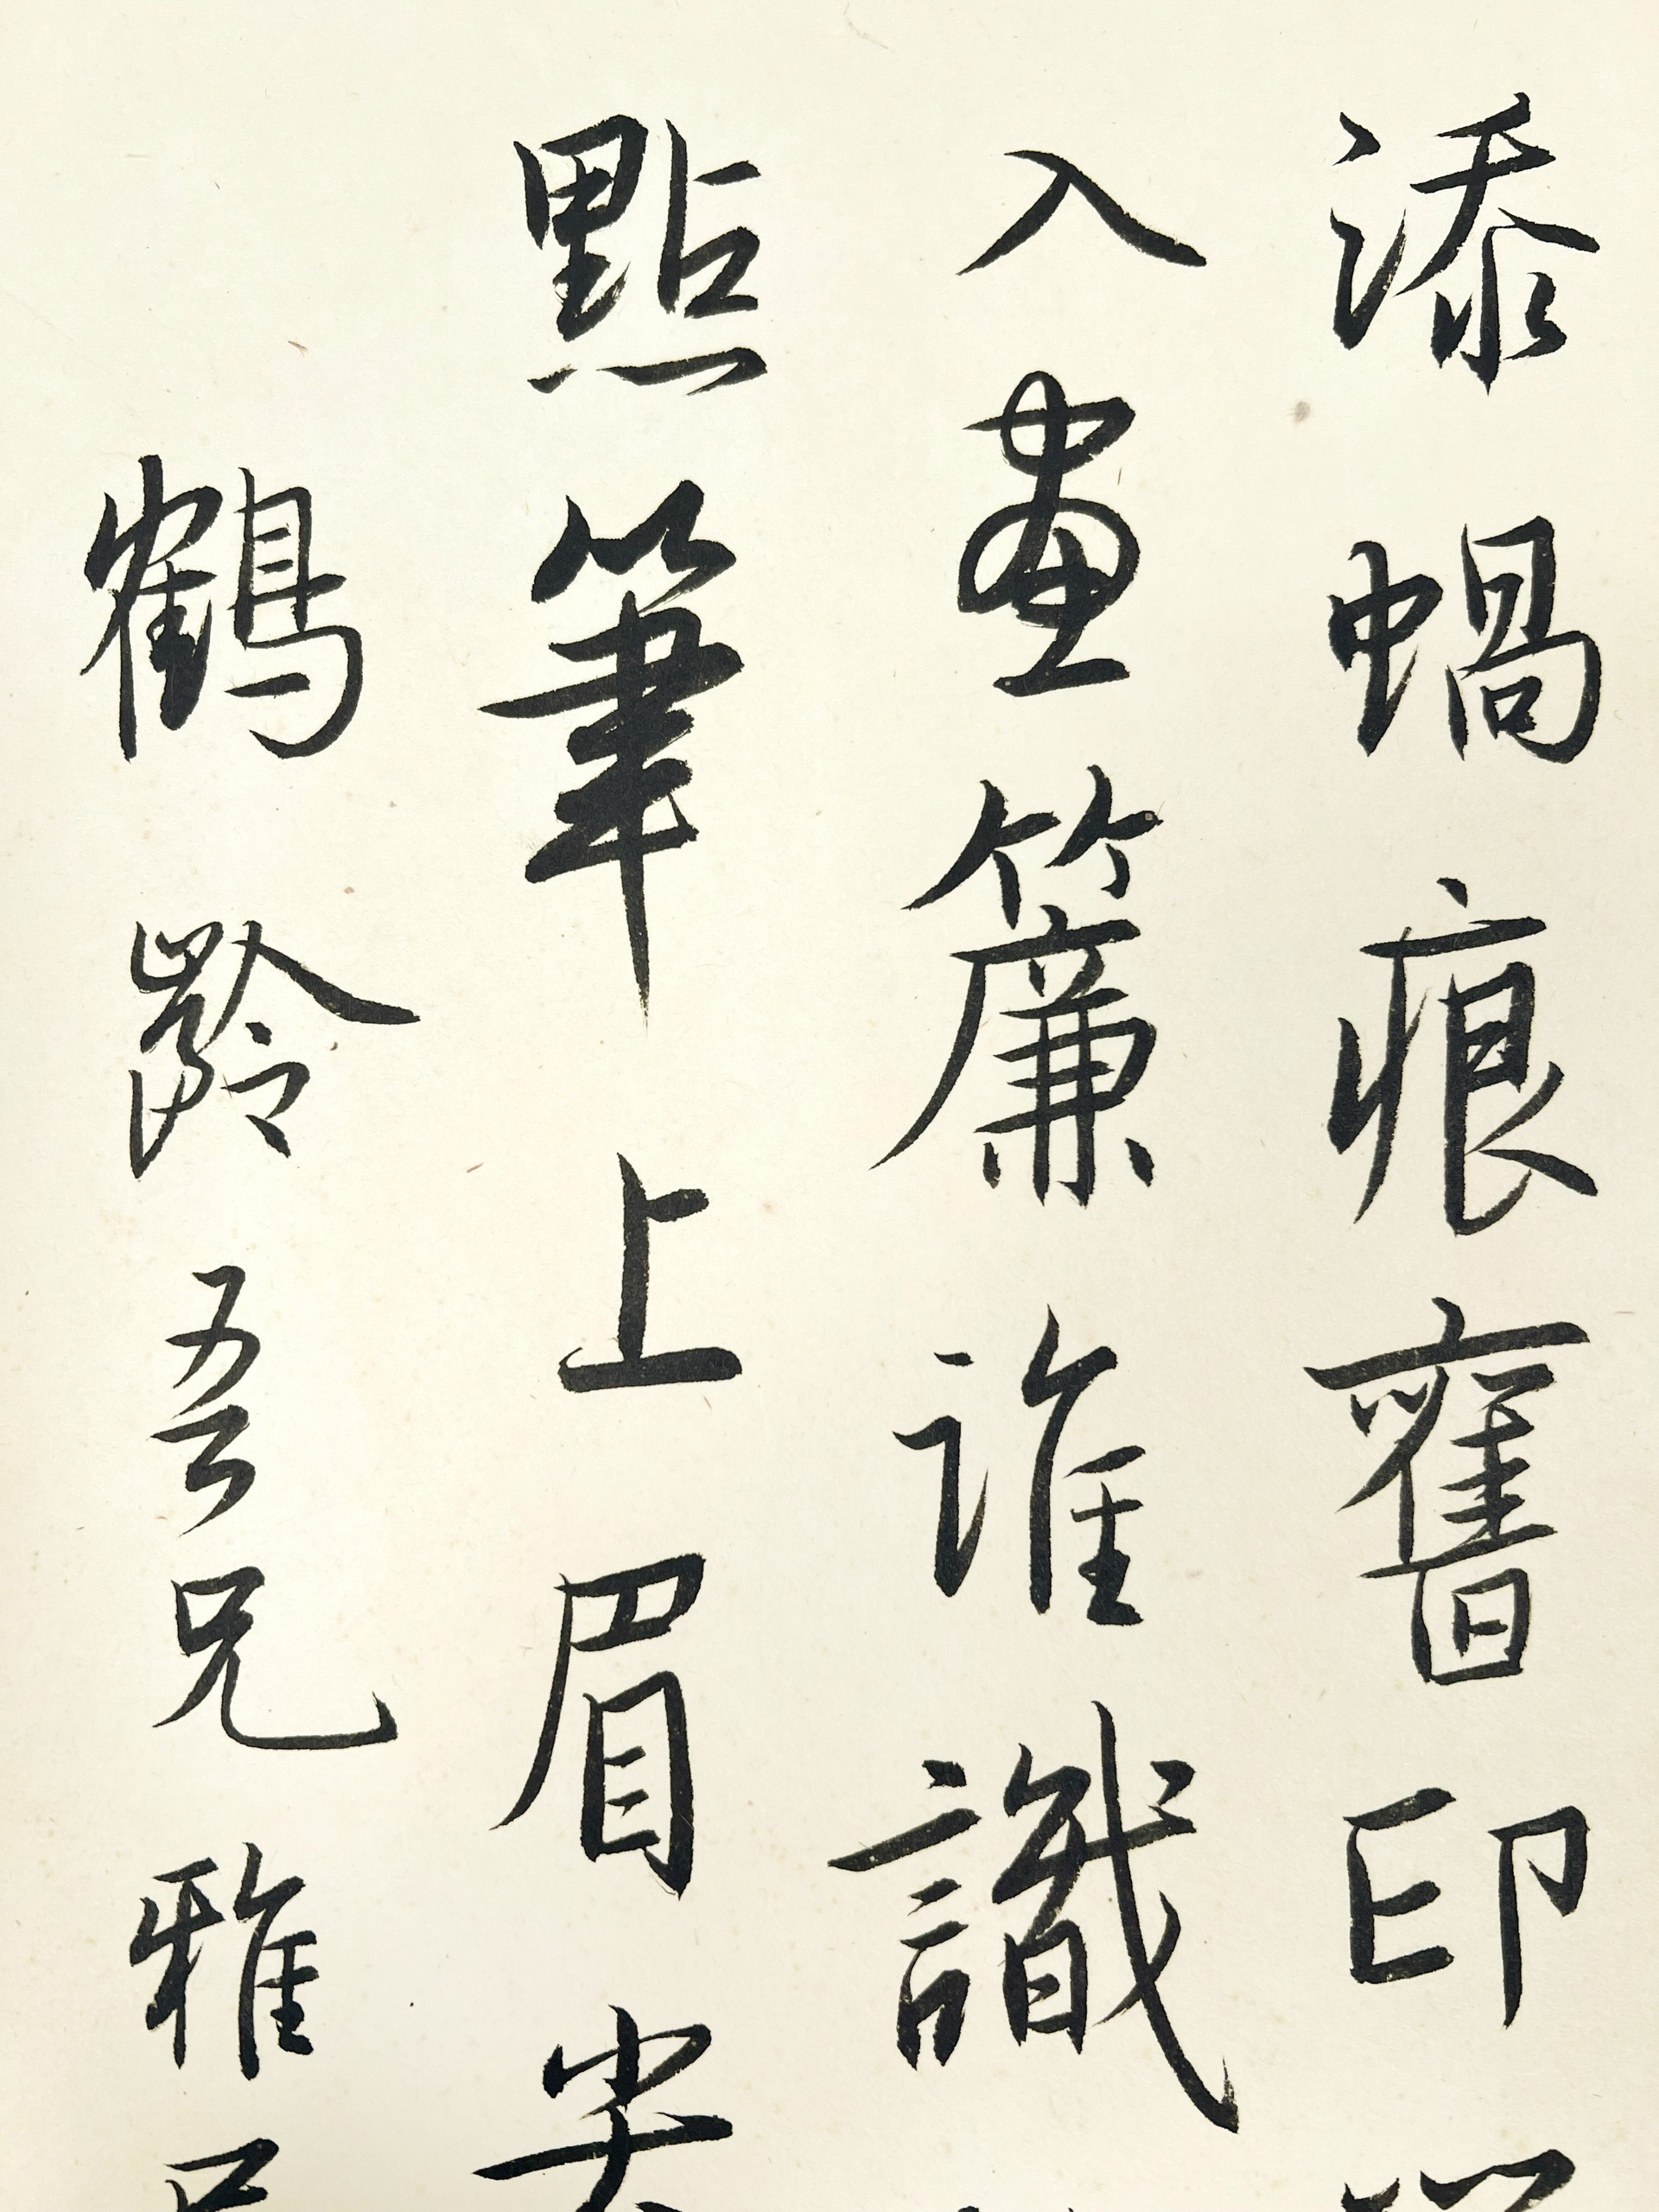 添蝸痕舊印
入畫簾誰識
點筆上眉尖
鶴齡吾兄雅